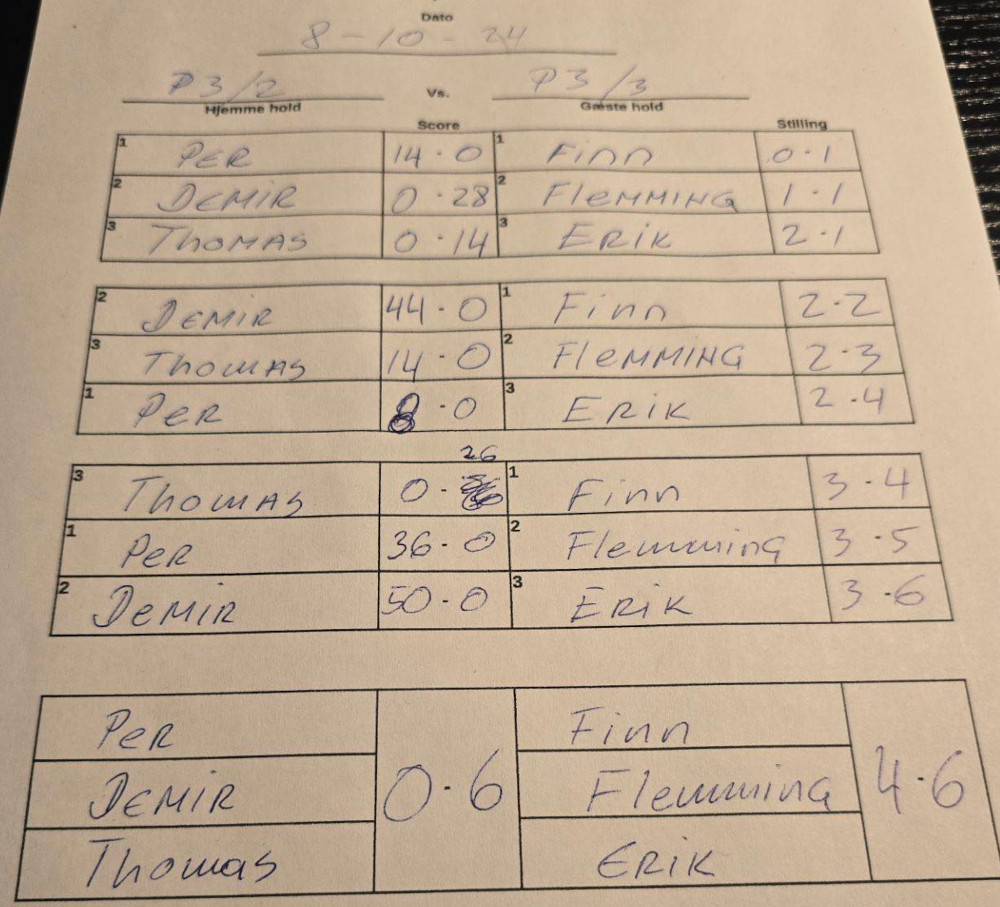 Dato
8-10-24
P3/2 Vs. P3/3
Hjemme hold Gæste hold
Score Stilling
1 PER 14·0 1 Finn 0·1
2 DEMIR 0·28 2 FleMMING 1·1
3 THOMAS 0·14 3 ERiK 2·1
2 DEMIR 44·0 1 Finn 2·2
3 THomAS 14·0 2 FleMMING 2·3
1 PER 8·0 3 ERiK 2·4
26
3 THomAS 0· 1 Finn 3·4
1 PER 36·0 2 Flemming 3·5
2 DEMIR 50·0 3 ERiK 3·6
PER Finn
DEMIR 0·6 Flemming 4·6
Thomas ERiK